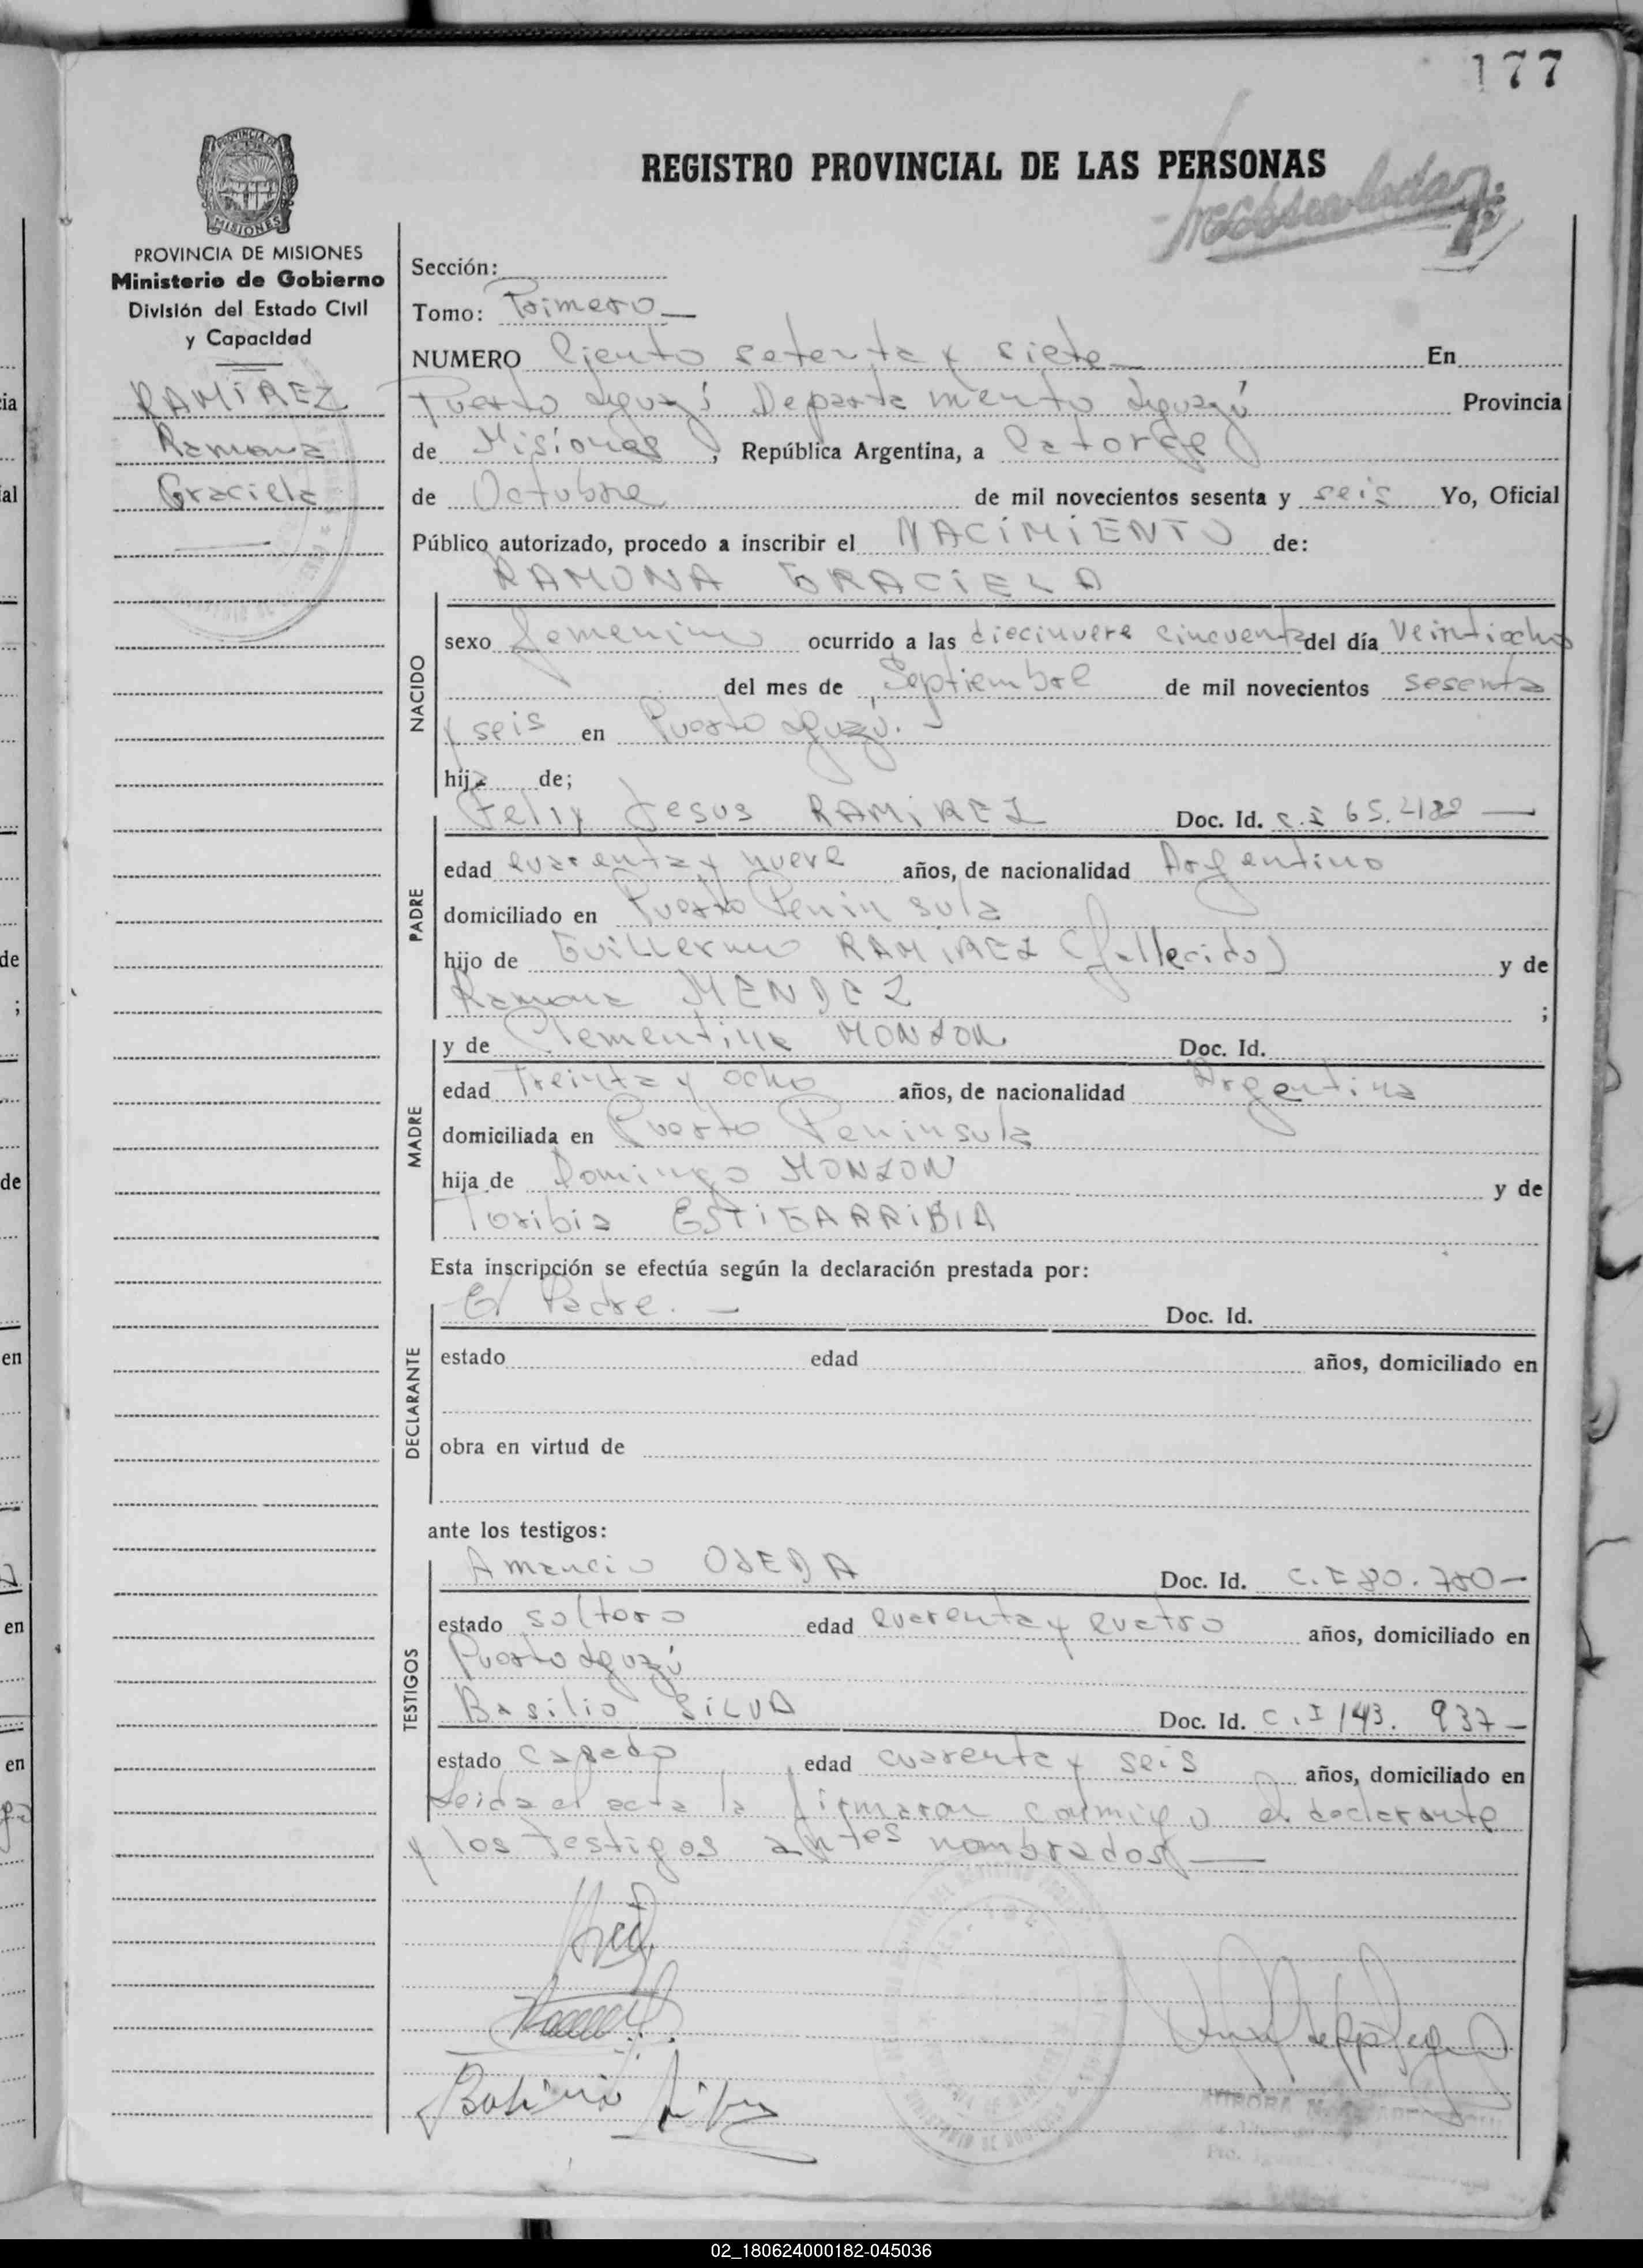 177
REGISTRO PROVINCIAL DE LAS PERSONAS
PROVINCIA DE MISIONES
MISIONES
PROVINCIA DE MISIONES
Ministerio de Gobierno
División del Estado Civil
y Capacidad
RAMIREZ
Ramona
Graciela
Sección:
Tomo: Primero
NUMERO Ciento setenta y siete En
Puerto Iguazú Departamento Iguazú Provincia
de Misiones, República Argentina, a Catorce
de Octubre de mil novecientos sesenta y seis Yo, Oficial
Público autorizado, procedo a inscribir el NACIMIENTO de:
RAMONA GRACIELA
NACIDO
sexo femenino ocurrido a las diecinueve cincuenta del día Veintiocho
del mes de Septiembre de mil novecientos sesenta
y seis en Puerto Iguazú.
hija de;
PADRE
Felix Jesus RAMIREZ Doc. Id. C.I 65.
edad cuarenta y nueve años, de nacionalidad Argentino
domiciliado en Puerto Peninsula
hijo de Guillermo RAMIREZ (fallecido) y de
Ramona MENDEZ ;
MADRE
y de Clementina MONZON. Doc. Id.
edad Treinta y ocho años, de nacionalidad Argentina
domiciliada en Puerto Peninsula
hija de Domingo MONZON y de
Toribia ESTIGARRIBIA
Esta inscripción se efectúa según la declaración prestada por:
DECLARANTE
El Padre. - Doc. Id.
estado edad años, domiciliado en
obra en virtud de
ante los testigos:
TESTIGOS
Amancio OJEDA Doc. Id. C.I 80.780-
estado soltero edad cuarenta y cuatro años, domiciliado en
Puerto Iguazú
Basilio SILVA Doc. Id. C.I 143. 937-
estado casado edad cuarenta y seis años, domiciliado en
Leida el acta la firmaron conmigo el declarante
y los testigos antes nombrados
Basilio Silva
AURORA
02_180624000182-045036